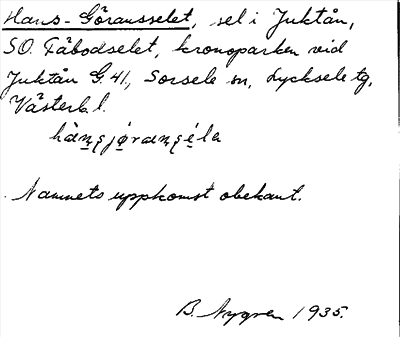 Hans-Göransselet, sel i Juktån,
SO. Fäbodselet, kronoparken vid
Juktån G. 41, Sorsele sn, Lycksele tg,
Västerb. l.
hànsjöransélə
Namnets uppkomst obekant.
B. Nygren 1935.